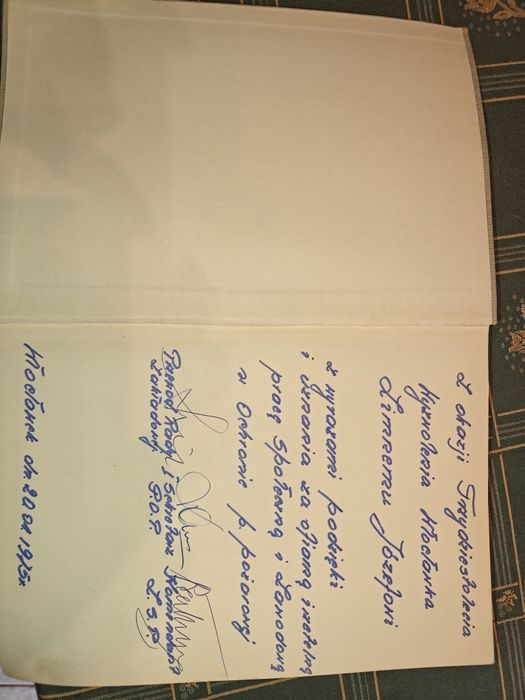 Z okazji Trzydziestolecia
Wyzwolenia Włocławka
Zimnemu Józefowi
z wyrazami podzięki
i uznania za ofiarną i rzetelną
pracę Społeczną i Zawodową
w Ochronie p. pożarowej
Przewod. Rady Sekretarz Komendant
Zakładowej P.O.P. Z.S.P.
Włocławek dn. 20.01.1975r.